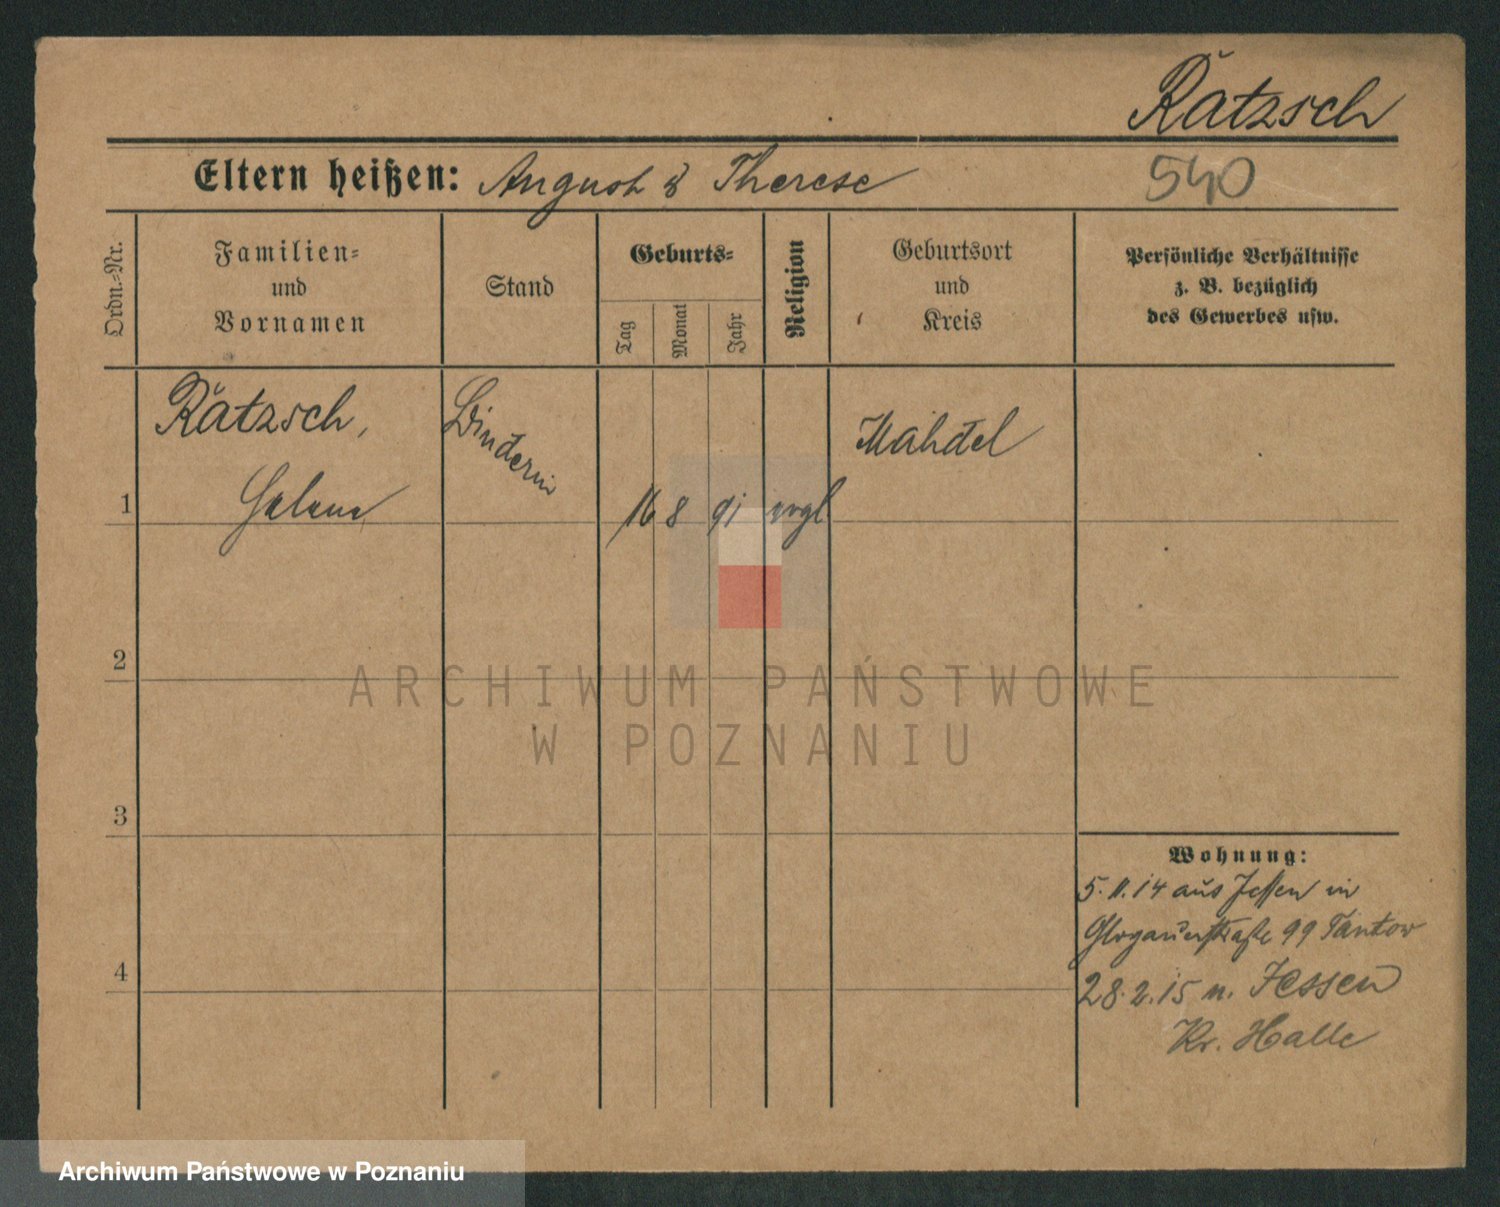 Rätzsch
Eltern heißen: August & Therese
540
Ordn.-Nr.
Familien-
und
Vornamen
Stand
Geburts-
Tag
Monat
Jahr
Religion
Geburtsort
und
Kreis
Persönliche Verhältnisse
z. B. bezüglich
des Gewerbes usw.
Rätzsch,
Helene
Binderin
1
16 8 91 evgl
Mahdel
2
3
4
ARCHIWUM PAŃSTWOWE
W POZNANIU
Wohnung:
5.11.14 aus Jessen in
Glogauerstraße 99 Tantow
28.2.15 n. Jessen
Kr. Halle
Archiwum Państwowe w Poznaniu